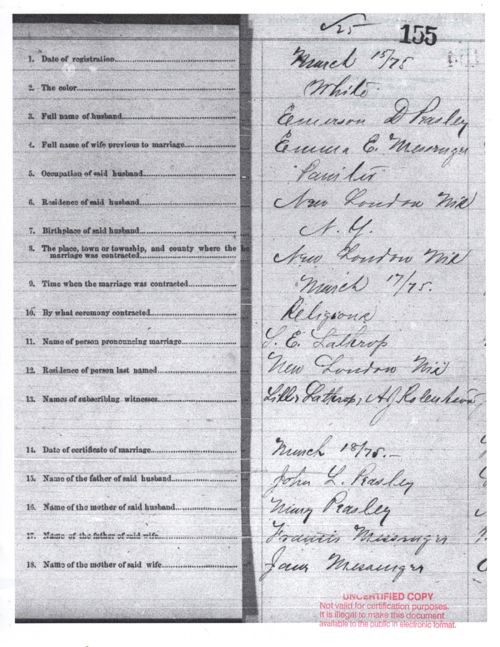 √25 155
1. Date of registration March 15/75
2. The color White
3. Full name of husband Emerson D Rasley
4. Full name of wife previous to marriage Emma E. Messenger
5. Occupation of said husband Painter
6. Residence of said husband New London Wis
7. Birthplace of said husband N. Y.
8. The place, town or township, and county where the
marriage was contracted New London Wis
9. Time when the marriage was contracted March 17/75.
10. By what ceremony contracted Religious
11. Name of person pronouncing marriage S. E. Lathrop
12. Residence of person last named New London Wis
13. Names of subscribing witnesses Lathrop,
14. Date of certificate of marriage March 18/75.
15. Name of the father of said husband John L. Rasley
16. Name of the mother of said husband Mary Rasley
17. Name of the father of said wife Francis Messenger
18. Name of the mother of said wife Jane Messenger
UNCERTIFIED COPY
Not valid for certification purposes.
It is illegal to make this document
available to the public in electronic format.